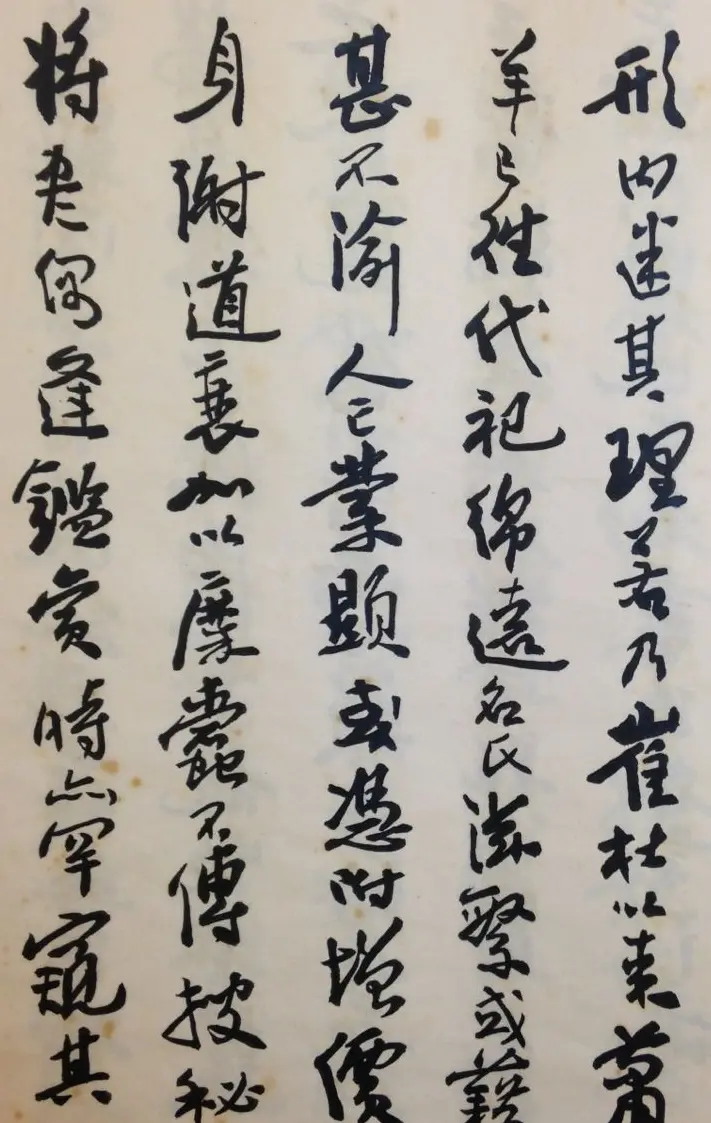 形内迷其理若乃崔杜以来萧
羊已往代祀绵远名氏滋繁或藉
甚不渝人亡業顯或憑附增價
身謝道衰加以糜蠹不傳搜秘
将盡偶逢鑑賞時亦罕窺其